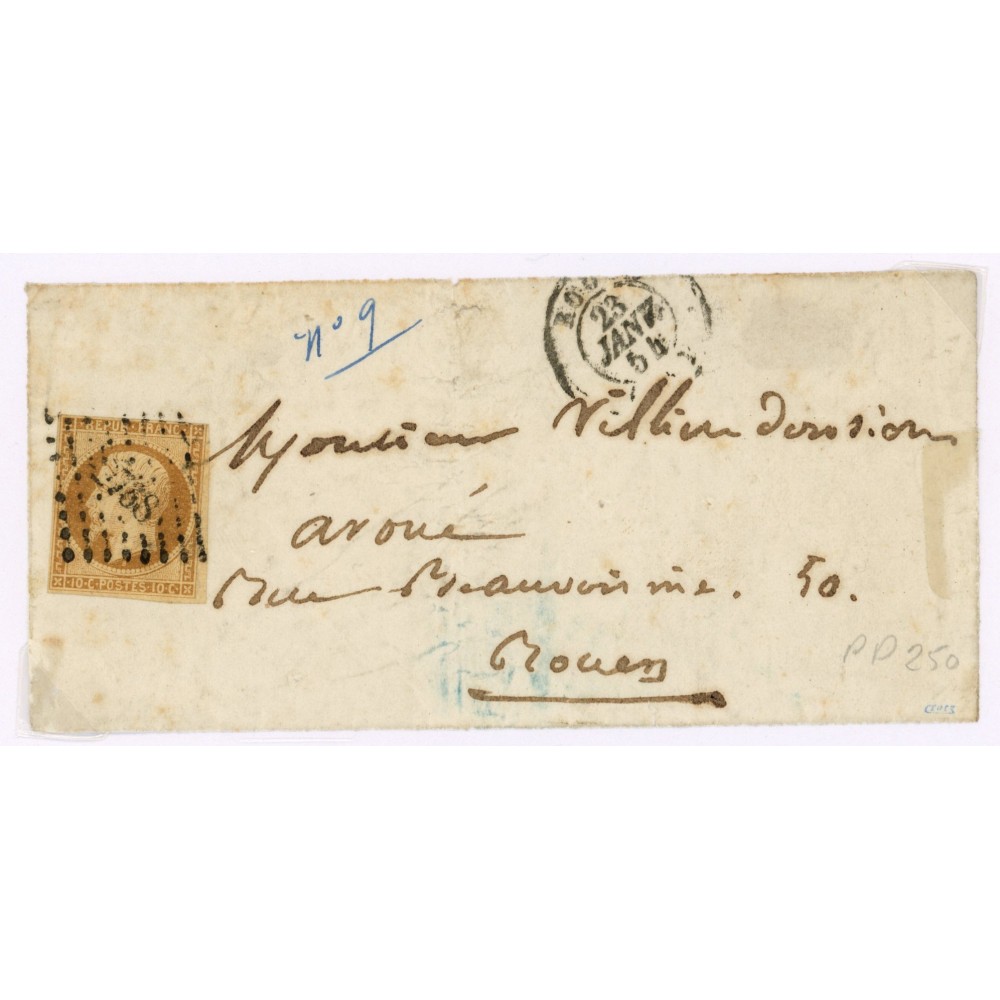 n° 9
ROU
23
JANV.
5 h
REPUB. FRANC
2738
10·C·POSTES·10·C·
Monsieur Villiers
avoué
Rue Beauvoisine. 50.
Rouen
PD 250